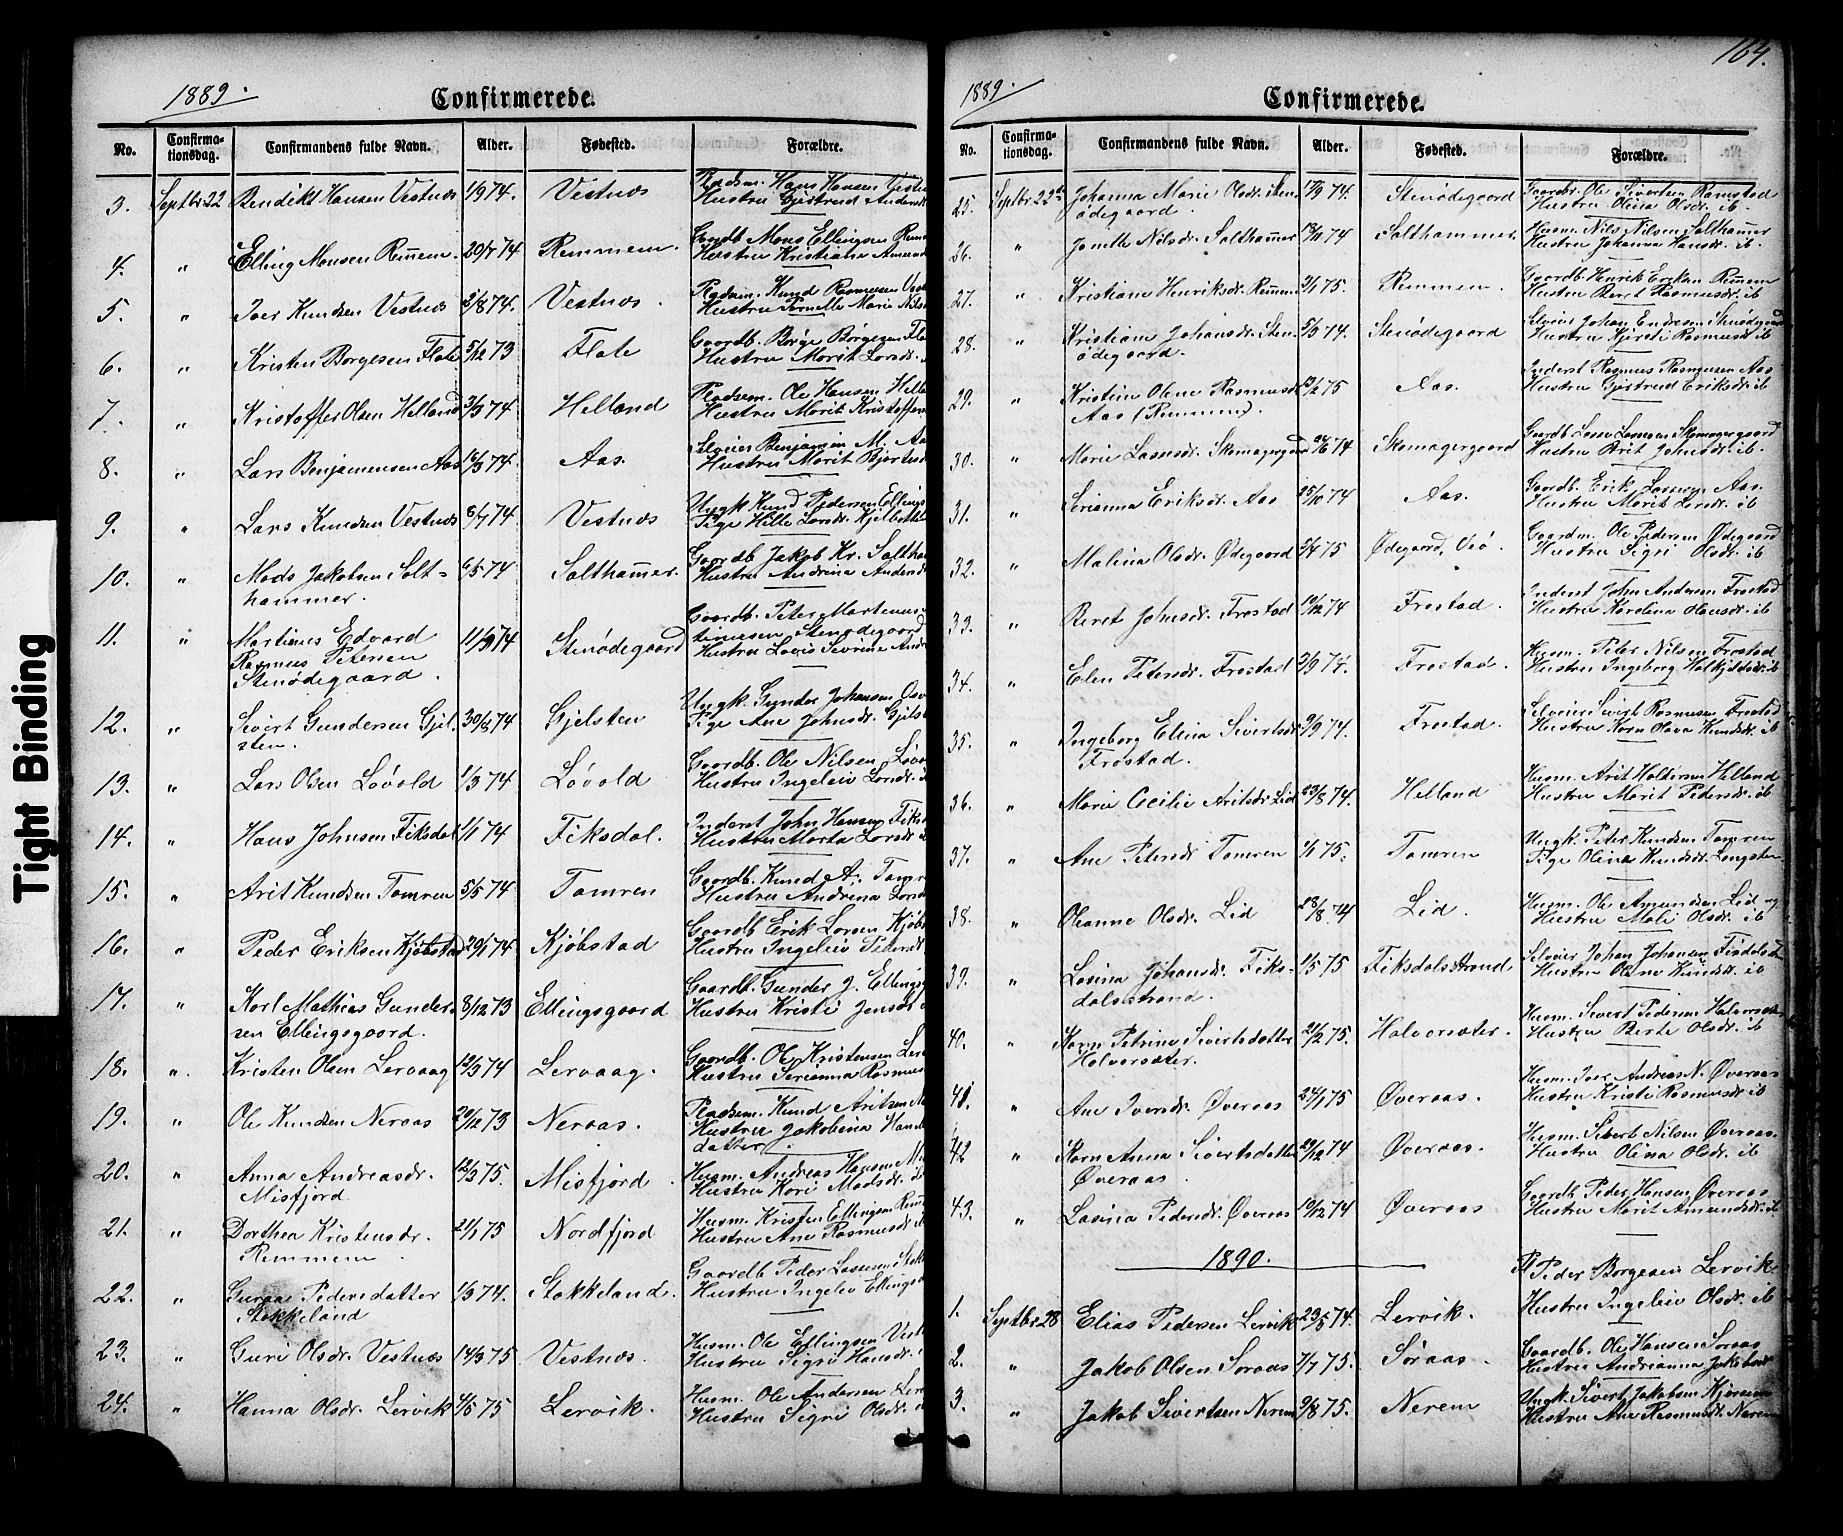 1889.
Confirmerede.
No. Confirma-tionsdag. Confirmandens fulde Navn. Alder. Fødested. Forældre.
3. Septbr 22 Bendikt Hansen Vestnæs 1/9 74. Vestnæs Pladsm. Hans Hansen
Hustru Gjertrud
4. " Elling Monsen Remmem 20/7 74 Remmem. Gaardb. Mons Ellingsen
Hustru Kristiane
5. " Iver Knudsen Vestnæs 2/8 74. Vestnæs. Pladsm. Knud Rasmussen
Hustru Pernelle Marie
6. " Kristen Børgesen Flate 5/12 73 Flate Gaardb. Børge Børgesen
Hustru Marit Larsdr.
7. " Kristoffer Olsen Helland 3/3 74 Helland Pladsm. Ole Hansen
Hustru Marit
8. " Lars Benjaminsen Aas 16/3 74. Aas. Selveier Benjamin M.
Hustru Marit
9. " Lars Knudsen Vestnæs 6/7 74 Vestnæs Ungk. Knud Pedersen
Pige Hille Larsdr.
10. " Mads Jakobsen Salt= 6/5 74 Salthamer. Gaardb. Jakob Kr.
hammer. Hustru Andrina
11. " Martinus Edvard 11/9 74 Stenødegaard Gaardb. Peter
Rasmus Petersen Stenødegaard
Stenødegaard. Hustru Lovis Severine
12. " Sivert Gundersen Gjel- 30/8 74 Gjelsten Ungk. Gunder Johansen
sten. Pige Ane Johnsdr.
13. " Lars Olsen Løvold 1/3 74 Løvold Gaardb. Ole Nilsen
Hustru Ingeleiv Larsdr.
14. " Hans Johnsen Fiksdal 1/1 74 Fiksdal. Inderst John Hansen
Hustru Marta Larsdr.
15. " Arit Knudsen Tomren 5/5 74 Tomren Gaardb. Knud A.
Hustru Andrina
16. " Peder Eriksen Kjøbstad 29/1 74 Kjøbstad Gaardb. Erik Larsen
Hustru Ingeleiv
17. " Karl Mathias Gunder- 8/12 73 Ellingsgaard Gaardb. Gunder J.
sen Ellingsgaard. Hustru Kristi Jensdr.
18. " Kristen Olsen Lervaag 12/3 74 Lervaag. Gaardb. Ole Kristensen
Hustru Serianna
19. " Ole Knudsen Neraas 20/12 73 Neraas. Pladsm. Knud Aritsen
Hustru Jakobina
datter
20. " Anna Andreasdr. 12/3 75. Misfjord Husm. Andreas Hansen
Misfjord Hustru Kari Madsdr.
21. " Dorthea Kristensdr. 21/1 75 Nordfjord Husm. Kristen Ellingsen
Remmem Hustru Ane Rasmusdr. ib
22. " Guraa Pedersdatter 1/3 74. Stokkeland. Gaardb. Peder Lassesen
Stokkeland Hustru Ingeleiv
23. " Guri Olsdr. Vestnæs 14/3 75 Vestnæs. Husm. Ole Ellingsen
Hustru Sigri Hansdr.
24. " Hanna Olsdr. Lervik 4/5 75 Lervik. Husm. Ole Andersen
Hustru Sigri Olsdr.
164.
1889.
Confirmerede.
No. Confirma-tionsdag. Confirmandens fulde Navn. Alder. Fødested. Forældre.
25. Septbr 22de Johanna Marie Olsdr. Sten- 17/9 74. Stenødegaard Gaardbr. Ole Sivertsen Ramstad
ødegaard. Hustru Olina Olsdr. ib
26. " Jonette Nilsdr. Salthamer 18/11 74 Salthammer Husm. Nils Nilsen Salthamer
Hustru Johanna Hansdr. ib.
27. " Kristiane Henriksdr. Remm. 3/1 75. Remmem. Gaardb. Henrik Eriksen Remmem
Hustru Beret Rasmusdr. ib
28. " Kristiane Johansdr. Sten- 5/9 74. Stenødegaard Selveier Johan Endresen Stenødgaard
ødegaard. Hustru Kjersti Rasmusdr ib
29. " Kristine Olene Rasmusdr. 13/2 75 Aas. Inderst Rasmus Rasmussen Aas
Aas (Remmem). Hustru Gjertrud Eriksdr. ib
30. " Marie Lassesdr. Skomagergaard 24/6 74 Skomagergaard Gaardb. Lasse Lassesen Skomagergaard
Hustru Brit Johnsdr. ib.
31. " Serianna Eriksdr. Aas 25/10 74 Aas. Gaardb. Erik Lassesen Aas.
Hustru Marit Larsdr. ib
32. " Malina Olsdr. Ødegaard 3/4 75 Ødegaard, Veø. Gaardm. Ole Pedersen Ødegaard
Hustru Sigri Olsdr. ib
33. " Beret Johnsdr. Frostad 10/12 74 Frostad. Inderst John Andersen Frostad
Hustru Karolina Olausdr. ib
34. " Elen Petersdr. Frostad 2/9 74. Frostad. Husm. Peter Nilsen Frostad
Hustru Ingeborg ib
35. " Ingeborg Elina Sivertsdr. 9/9 74. Frostad. Selveier Sivert Rasmusen Frostad
Frostad. Hustru Karn Olava Knudsdr. ib
36. " Marie Cecilie Aritsdr. Lid 23/8 74. Helland Husm. Arit Haltersen Helland
Hustru Marit Pedersdr. ib
37. " Ane Petersdr Tomren 1/1 75. Tomren Ungk. Peter Knudsen Tomren
Pige Olina Knudsdr.
38. " Olianne Olsdr. Lid 28/8 74 Lid. Husm. Ole Amundsen Lid og
Hustru Mali Olsdr. ib
39. " Lasina Johansdr. Fiks- 1/5 75 Fiksdalsstrand Selveier Johan Johansen
dalsstrand. Hustru Oline Knudsdr. ib
40. " Karn Petrine Sivertsdatter 21/2 75. Halvorsæter. Husm. Sivert Pedersen Halvorsæter
Halvorsæter. Hustru Berte Olsdr. ib
41. " Ane Iversdr. Øveraas 24/1 75 Øveraas. Husm. Iver Andreas N. Øveraas
Hustru Kristi Rasmusdr. ib
42 " Karn Anna Sivertsdatter 29/12 74 Øveraas. Husm. Sivert Nilsen Øveraas.
Øveraas Hustru Olina Olsdr. ib
43. " Lasina Pedersdr. Øveraas 10/12 74 Øveraas Gaardb. Peder Hansen Øveraas
Hustru Marit Amundsdr. ib
1890.
1. Septbr 28 Elias Pedersen Lervik 23/5 74. Lervik. Pl Peder Børgesen Lervik
Hustru Ingeleiv Olsdr. ib
2. " Jakob Olsen Søraas 7/7 75. Søraas. Gaardb. Ole Hansen Søraas
Hustru Andrianna Jakobsdr
3. " Jakob Sivertsen Nerem 9/8 75. Nerem Ungk. Sivert Jakobsen
Hustru Ane Rasmusdr. Nerem
Tight Binding